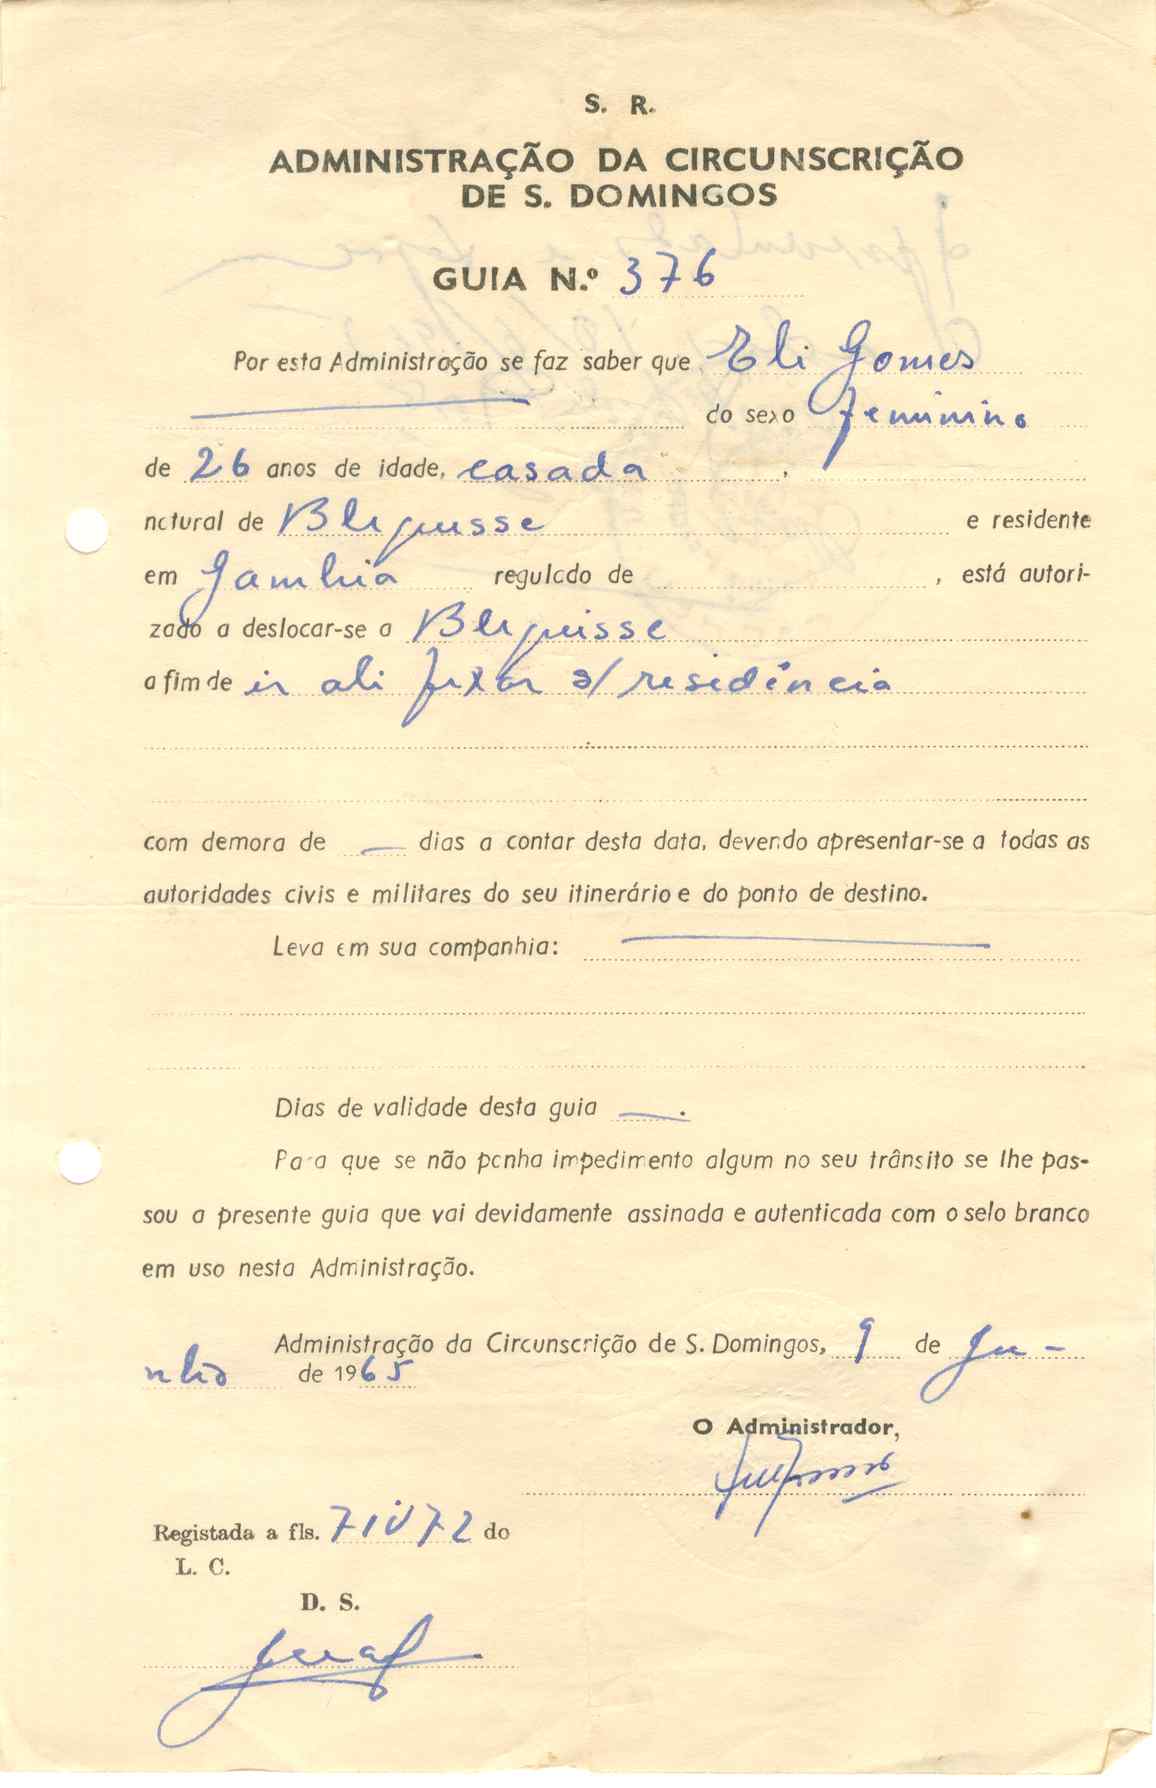 S. R.
ADMINISTRAÇÃO DA CIRCUNSCRIÇÃO
DE S. DOMINGOS
GUIA N.º 376
Por esta Administração se faz saber que Eli Gomes
do sexo feminino
de 26 anos de idade, casada,
natural de e residente
em Gambia regulado de , está autori-
zado a deslocar-se a
a fim de ir ali fixar s/ residência
com demora de — dias a contar desta data, devendo apresentar-se a todas as
autoridades civis e militares do seu itinerário e do ponto de destino.
Leva em sua companhia:
Dias de validade desta guia —.
Para que se não ponha impedimento algum no seu trânsito se lhe pas-
sou a presente guia que vai devidamente assinada e autenticada com o selo branco
em uso nesta Administração.
Administração da Circunscrição de S. Domingos, 9 de Ju-
nho de 1965
O Administrador,
Registada a fls. 71V72 do
L. C.
D. S.